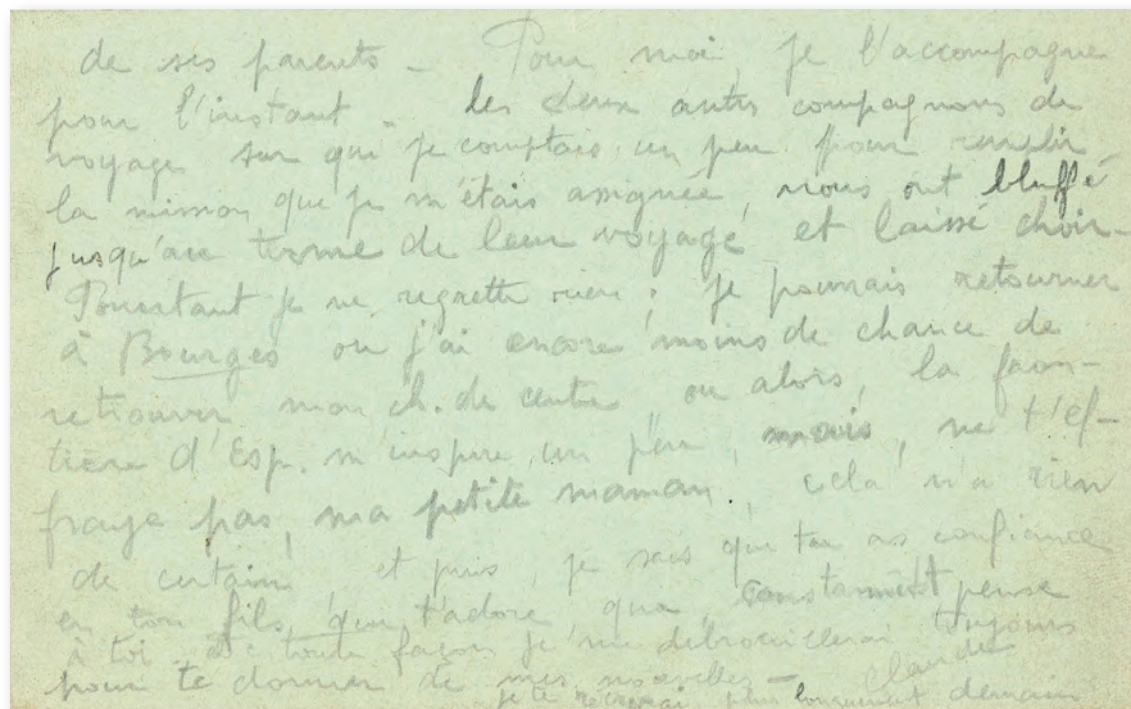 de ses parents - Pour moi, je l'accompagne
pour l'instant - les deux autres compagnons de
voyage sur qui je comptais un peu pour remplir
la mission que je m'étais assignée, nous ont bluffé
jusqu'au terme de leur voyage et laissé choir -
Pourtant je ne regrette rien ; je pourrais retourner
à Bourges ou j'ai encore moins de chance de
retrouver mon ch. de centre ou alors, la fron-
tière d'Esp. m'inspire un peu, mais, ne t'ef-
fraye pas, ma petite maman, cela n'a rien
de certain et puis, je sais que tu as confiance
en ton fils qui t'adore, qui constamment pense
à toi. De toute façon je me débrouillerai toujours
pour te donner de mes nouvelles - Claude
je te récrirai plus longuement demain